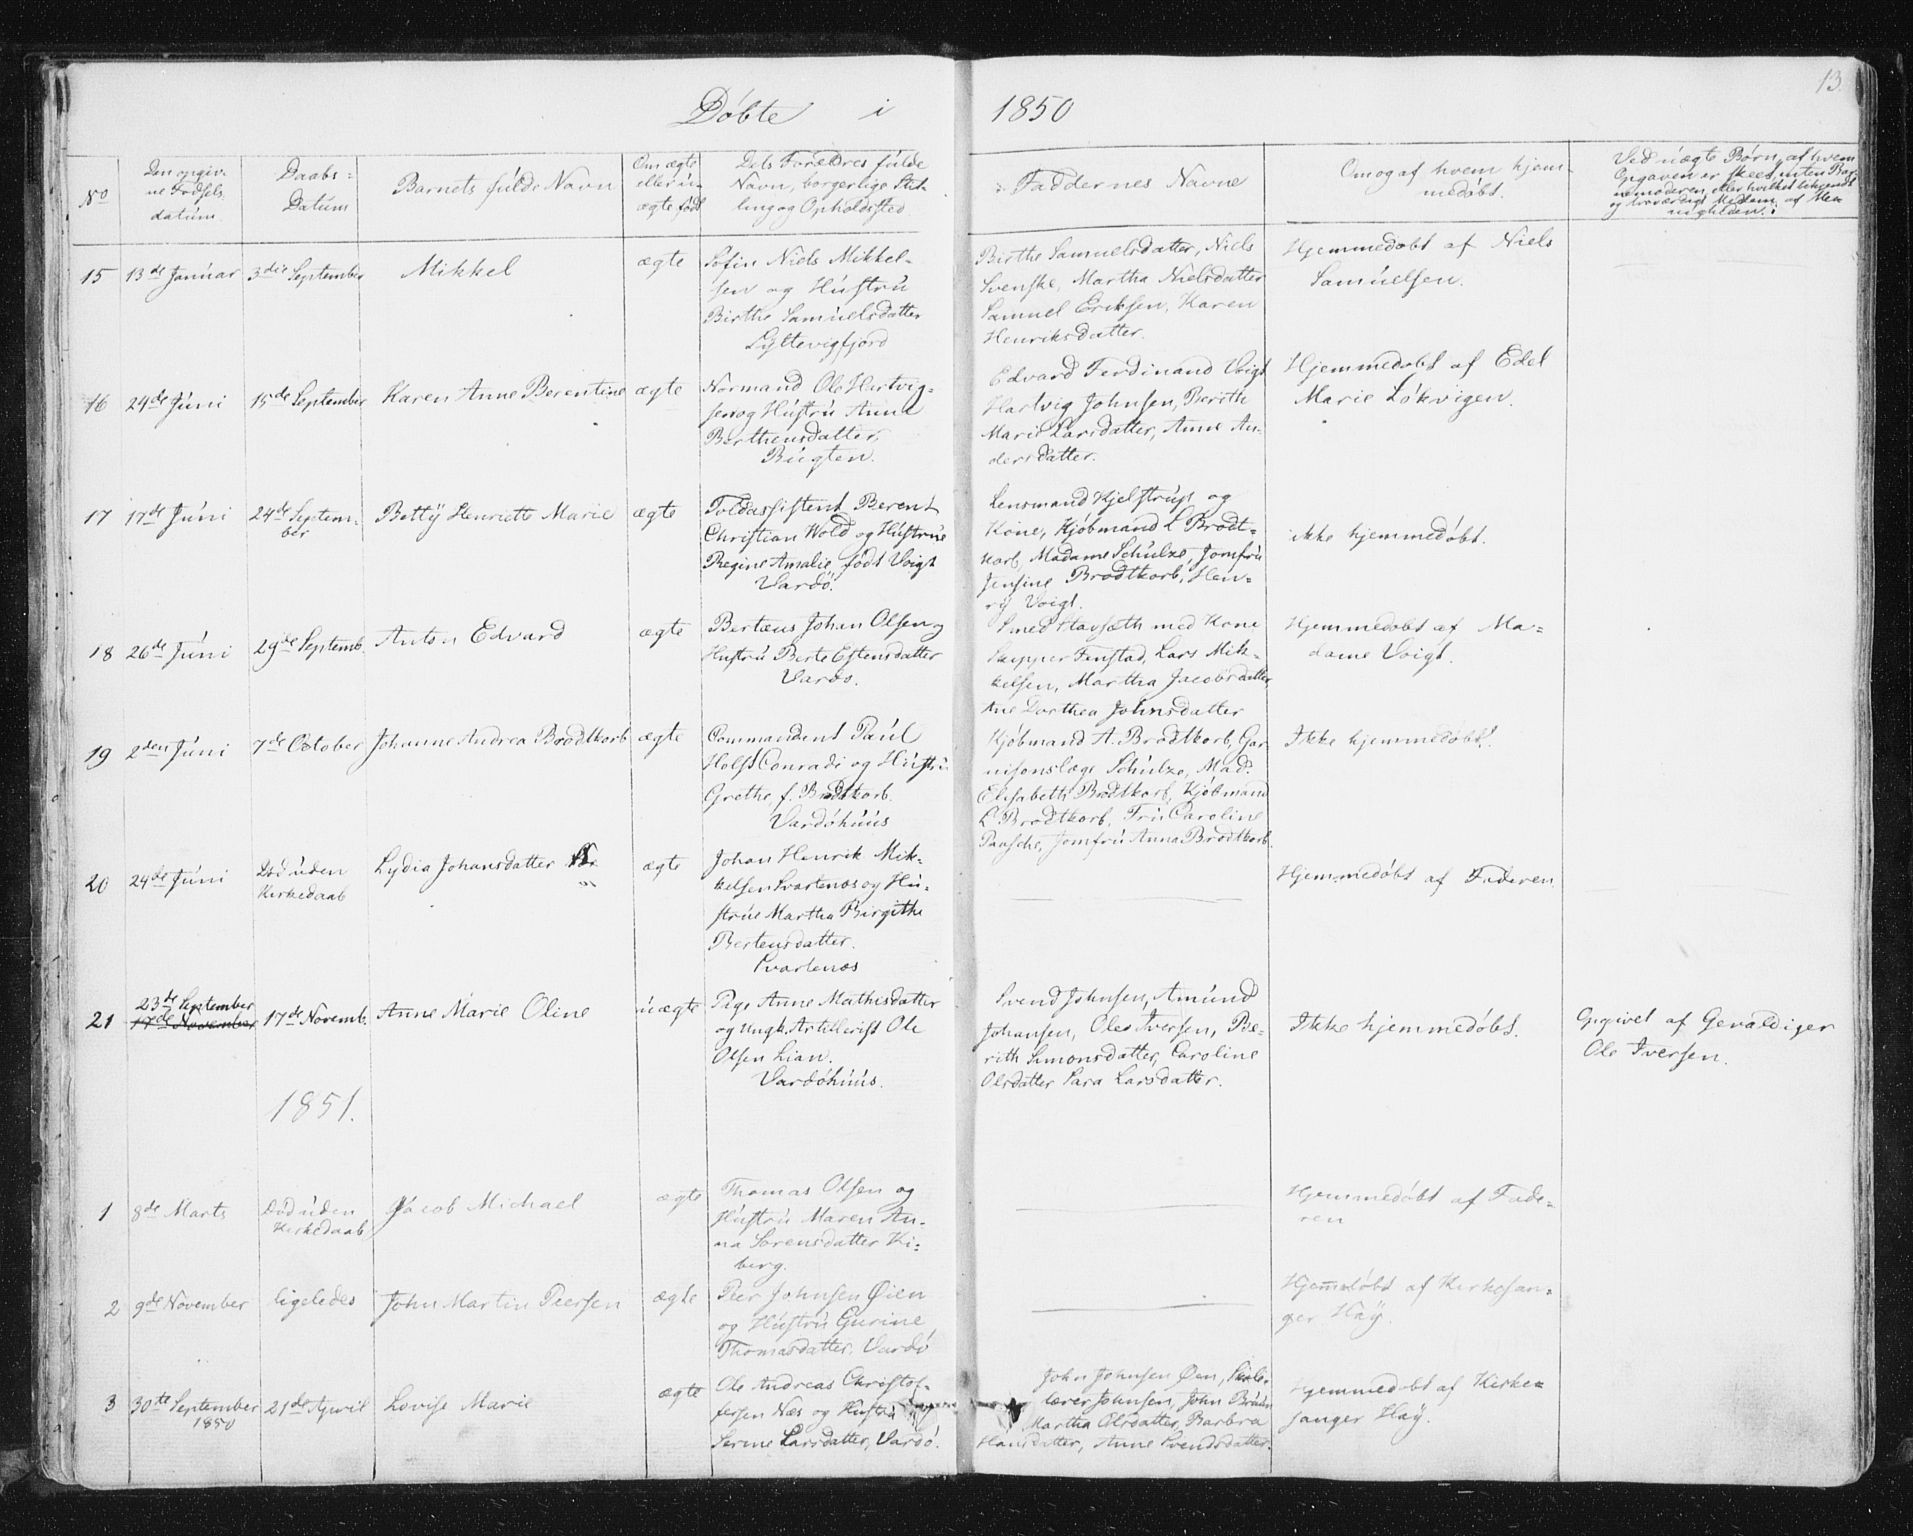 13.
Döbte i 1850
No
Den opgiv-
ne Fødsels
datum.
Daabs-
Datum
Barnets fulde Navn
Om ægte
eller u-
ægte født
Dets Forældres fulde
Navn, borgerlige Stil-
ling og Opholdssted
Faddernes Navne
Om og af hvem hjem-
medøbt.
Ved uægte Børn, af hvem
Opgaven er skeet, enten Bar-
nemoderen, eller hvilket bekjendt
og troværdigt Medlem af Me-
nigheden.
15
13de Januar
3die September
Mikkel
ægte
Søfin Niels Mikkel-
sen og Hustru
Birthe Samuelsdatter
Syltevigfjord
Birthe Samuelsdatter, Niels
Svenske, Martha Nielsdatter
Samuel Eriksen, Karen
Henriksdatter.
Hjemmedøbt af Niels
Samuelsen.
16
24de Juni
15de September
Karen Anne Berentine
ægte
Normand Ole Hartvig-
sen og Hustru Anne
Berthensdatter,
Bugten.
Edvard Ferdinand Voigt
Hartvig Johnsen, Berithe
Marie Larsdatter, Anne An-
dersdatter.
Hjemmedøbt af Edel
Marie Løkvigen.
17
17de Juni
24de Septem-
ber
Betty Henriette Marie
ægte
Toldassistent Berent
Christian Wold og Hustrue
Regine Amalie født Voigt
Vardø.
Lensmand Kjelstrup og
Kone, Kjøbmand L Brodt-
korb, Madame Schulze, Jomfru
Jensine Brodtkorb, Hen-
ry Voigt.
ikke hjemmedøbt.
18
26de Juni
29de Septemb.
Anton Edvard
ægte
Bertæus Johan Olsen og
Hustru Berte Estensdatter
Vardø.
Smed Stavsæth med Kone
Skipper Finstad, Lars Mik-
kelsen, Martha Jacobsdatter
Ane Dorthea Johnsdatter
Hjemmedøbt af Ma-
dame Voigt.
19
2den Juni
7de October
Johanne Andrea Brodtkorb
ægte
Commandent Paul
Holst Conradi og Hustru
Grethe f. Brodtkorb.
Vardøhuus
Kjøbmand A. Brodtkorb, Gar-
nisonslæge Schulze, Mad.
Elisabeth Brodtkorb, Kjøbmand
L Brodtkorb, Fru Caroline
Paasche, Jomfru Anna Brodtkorb.
Ikke hjemmedøbt.
20
24de Juni
Død uden
Kirkedaab
Lydia Johansdatter
ægte
Johan Henrik Mik-
kelsen Svartenæs og Hu-
strue Martha Birgithe
Bertensdatter.
Svartenæs
Hjemmedøbt af Faderen.
21
23de September
17de November
17de Novemb.
Anne Marie Oline
uægte
Pige Anne Mathisdatter
og Ungk. Artillerist Ole
Olsen Lian.
Vardøhuus.
Svend Johnsen, Amund
Johansen, Ole Iversen, Be-
rith Simonsdatter, Caroline
Olsdatter Sara Larsdatter.
Ikke hjemmedøbt.
Opgivet af Gevaldiger
Ole Iversen.
1851.
1
8de Marts
Død uden
Kirkedaab
Jacob Michael
ægte
Thomas Olsen og
Hustru Maren An-
na Sørensdatter Ki-
berg.
Hjemmedøbt af Fade-
ren
2
9de November
ligeledes
John Martin Peersen
ægte
Peer Johnsen Øien
og Hustru Gurine
Thomasdatter, Vardø
Hjemmedøbt af Kirkesan-
ger Hay.
3
30te September
1850
21de April
Lovise Marie
ægte
Ole Andreas Christof-
fersen Næs og Hustru
Serine Larsdatter, Vardø.
John Johnsen Øen, Skole-
lærer Johnsen, John Bruun
Martha Olsdatter, Barbra
Hansdatter, Anne Svendsdatter.
Hjemmedøbt af Kirke-
sanger Hay.